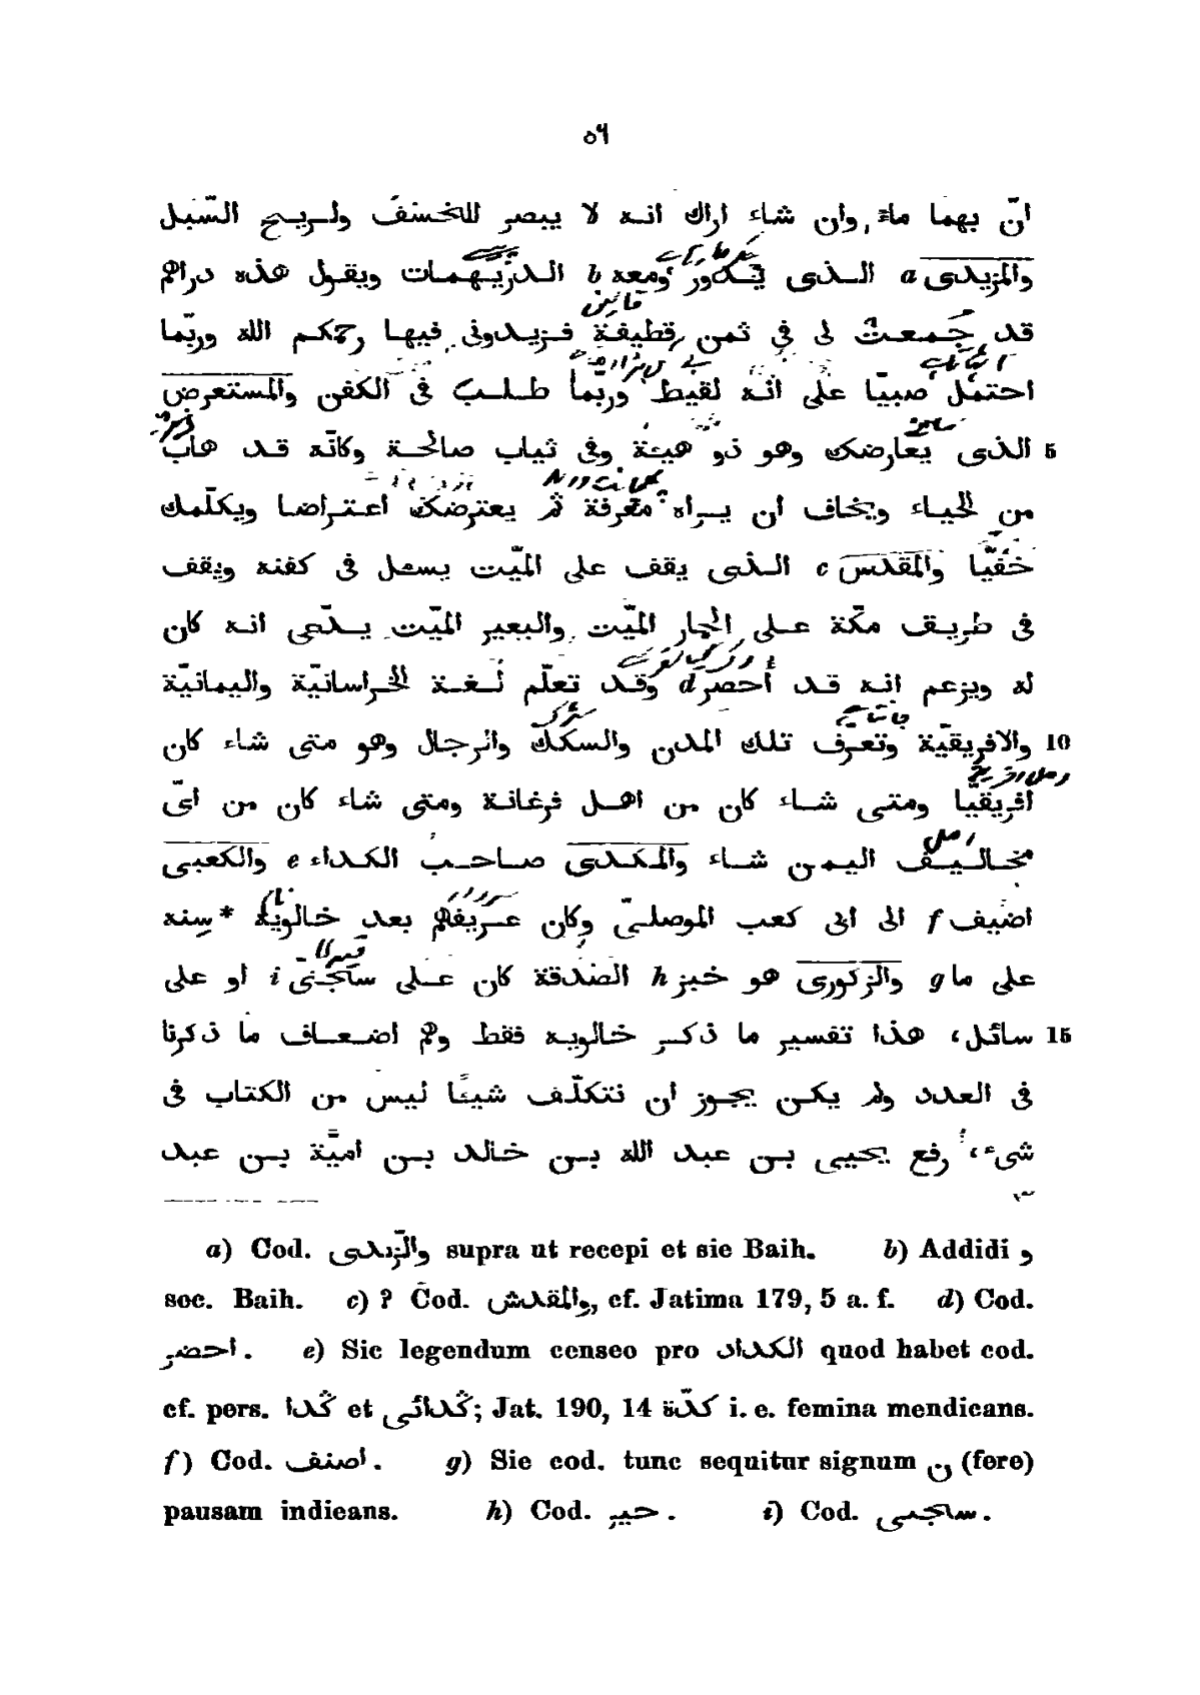 ٥٩
انّ بهما ماء، وان شاء اراك انه لا يبصر للخسف ولريح السّبل
والمزيدى a الذى يدور ومعه b الدريهمات ويقول هذه دراهم
قد جمعتْ لى فى ثمن قطيفة فزيدونى فيها رحمكم الله وربّما
احتمل صبيّا على انّه لقيط وربّما طلب فى الكفن والمستعرض
الذى يعارضك وهو ذو هيئة وفى ثياب صالحة وكانّه قد هاب 5
من الحياء ويخاف ان يراه معرفة ثم يعترضك اعتراضا ويكلّمك
خفيّا والمقدّس c الذى يقف على الميّت يسعل فى كفنه ويقف
فى طريق مكّة على الحمار الميّت والبعير الميّت يدّعى انه كان
له ويزعم انه قد أحصر d وقد تعلّم لغة الخراسانيّة واليمانيّة
والافريقيّة وتعرّف تلك المدن والسكك والرجال وهو متى شاء كان 10
افريقيّا ومتى شاء كان من اهل فرغانة ومتى شاء كان من اىّ
مخاليف اليمن شاء والمكدى صاحب الكداء e والكعبى
اضيف f الى ابى كعب الموصلىّ وكان عريفهم بعد خالويه * سنه
على ما g والزكورى هو خبز h الصدقة كان على ساجنى i او على
سائل، هذا تفسير ما ذكر خالويه فقط وهم اضعاف ما ذكرنا 15
فى العدد ولم يكن يجوز ان نتكلّف شيئا ليس من الكتاب فى
شىء، رفع يحيى بن عبد الله بن خالد بن اميّة بن عبد
a) Cod. والزّيدى supra ut recepi et sic Baih. b) Addidi و
sec. Baih. c) ? Cod. والمقدش, cf. Jatima 179, 5 a. f. d) Cod.
احضر. e) Sic legendum censeo pro الكداد quod habet cod.
cf. pers. گدا et گدائى; Jat. 190, 14 كدّة i. e. femina mendicans.
f) Cod. اصنف. g) Sic cod. tunc sequitur signum ن (fere)
pausam indicans. h) Cod. حير. i) Cod. ساجى.